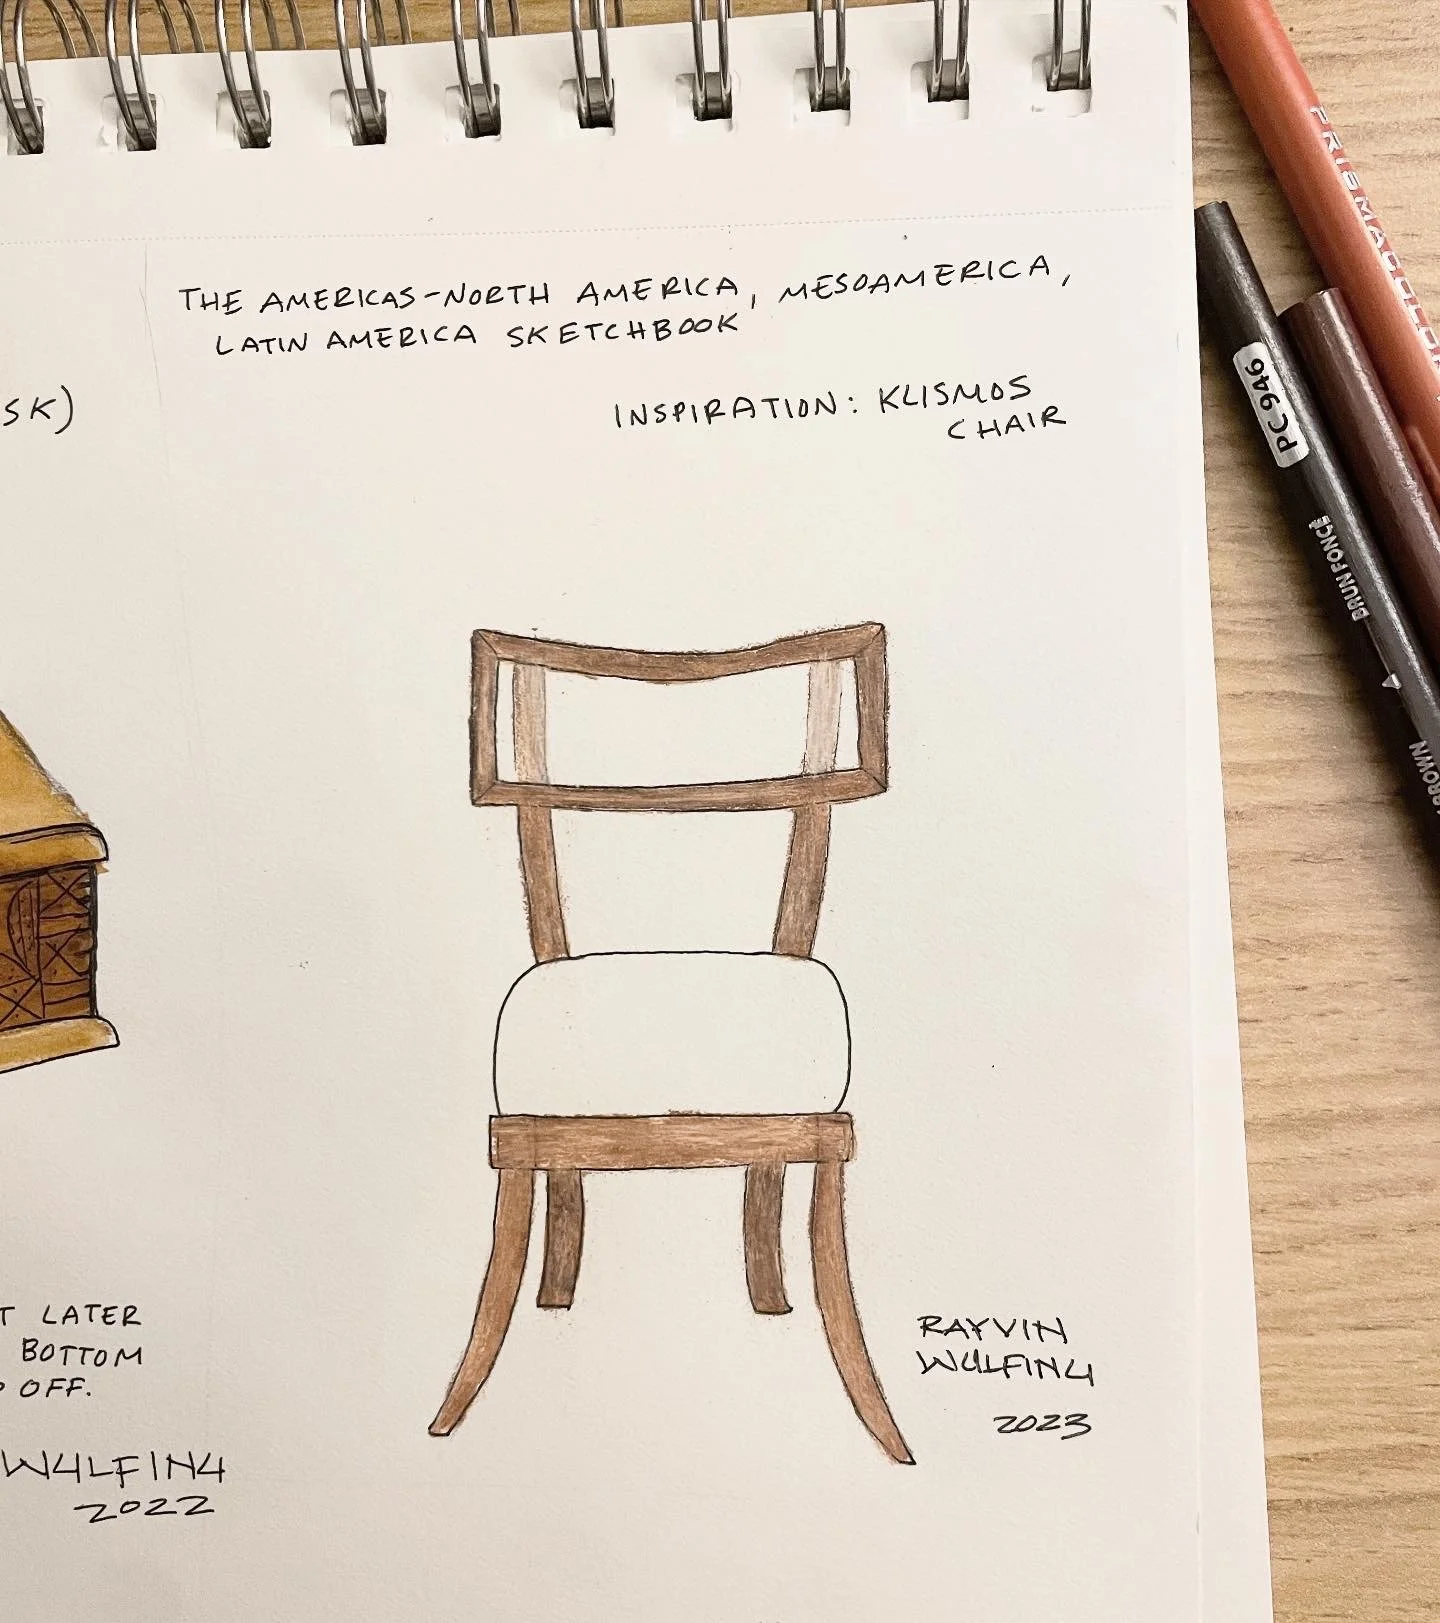 THE AMERICAS-NORTH AMERICA, MESOAMERICA,
LATIN AMERICA SKETCHBOOK
SK)
INSPIRATION: KLISMOS
CHAIR
T LATER
BOTTOM
OFF.
WULFING
2022
RAYVIN
WULFING
2023
PRISMACOLOR
PC 946
BRUN FONCÉ
BROWN